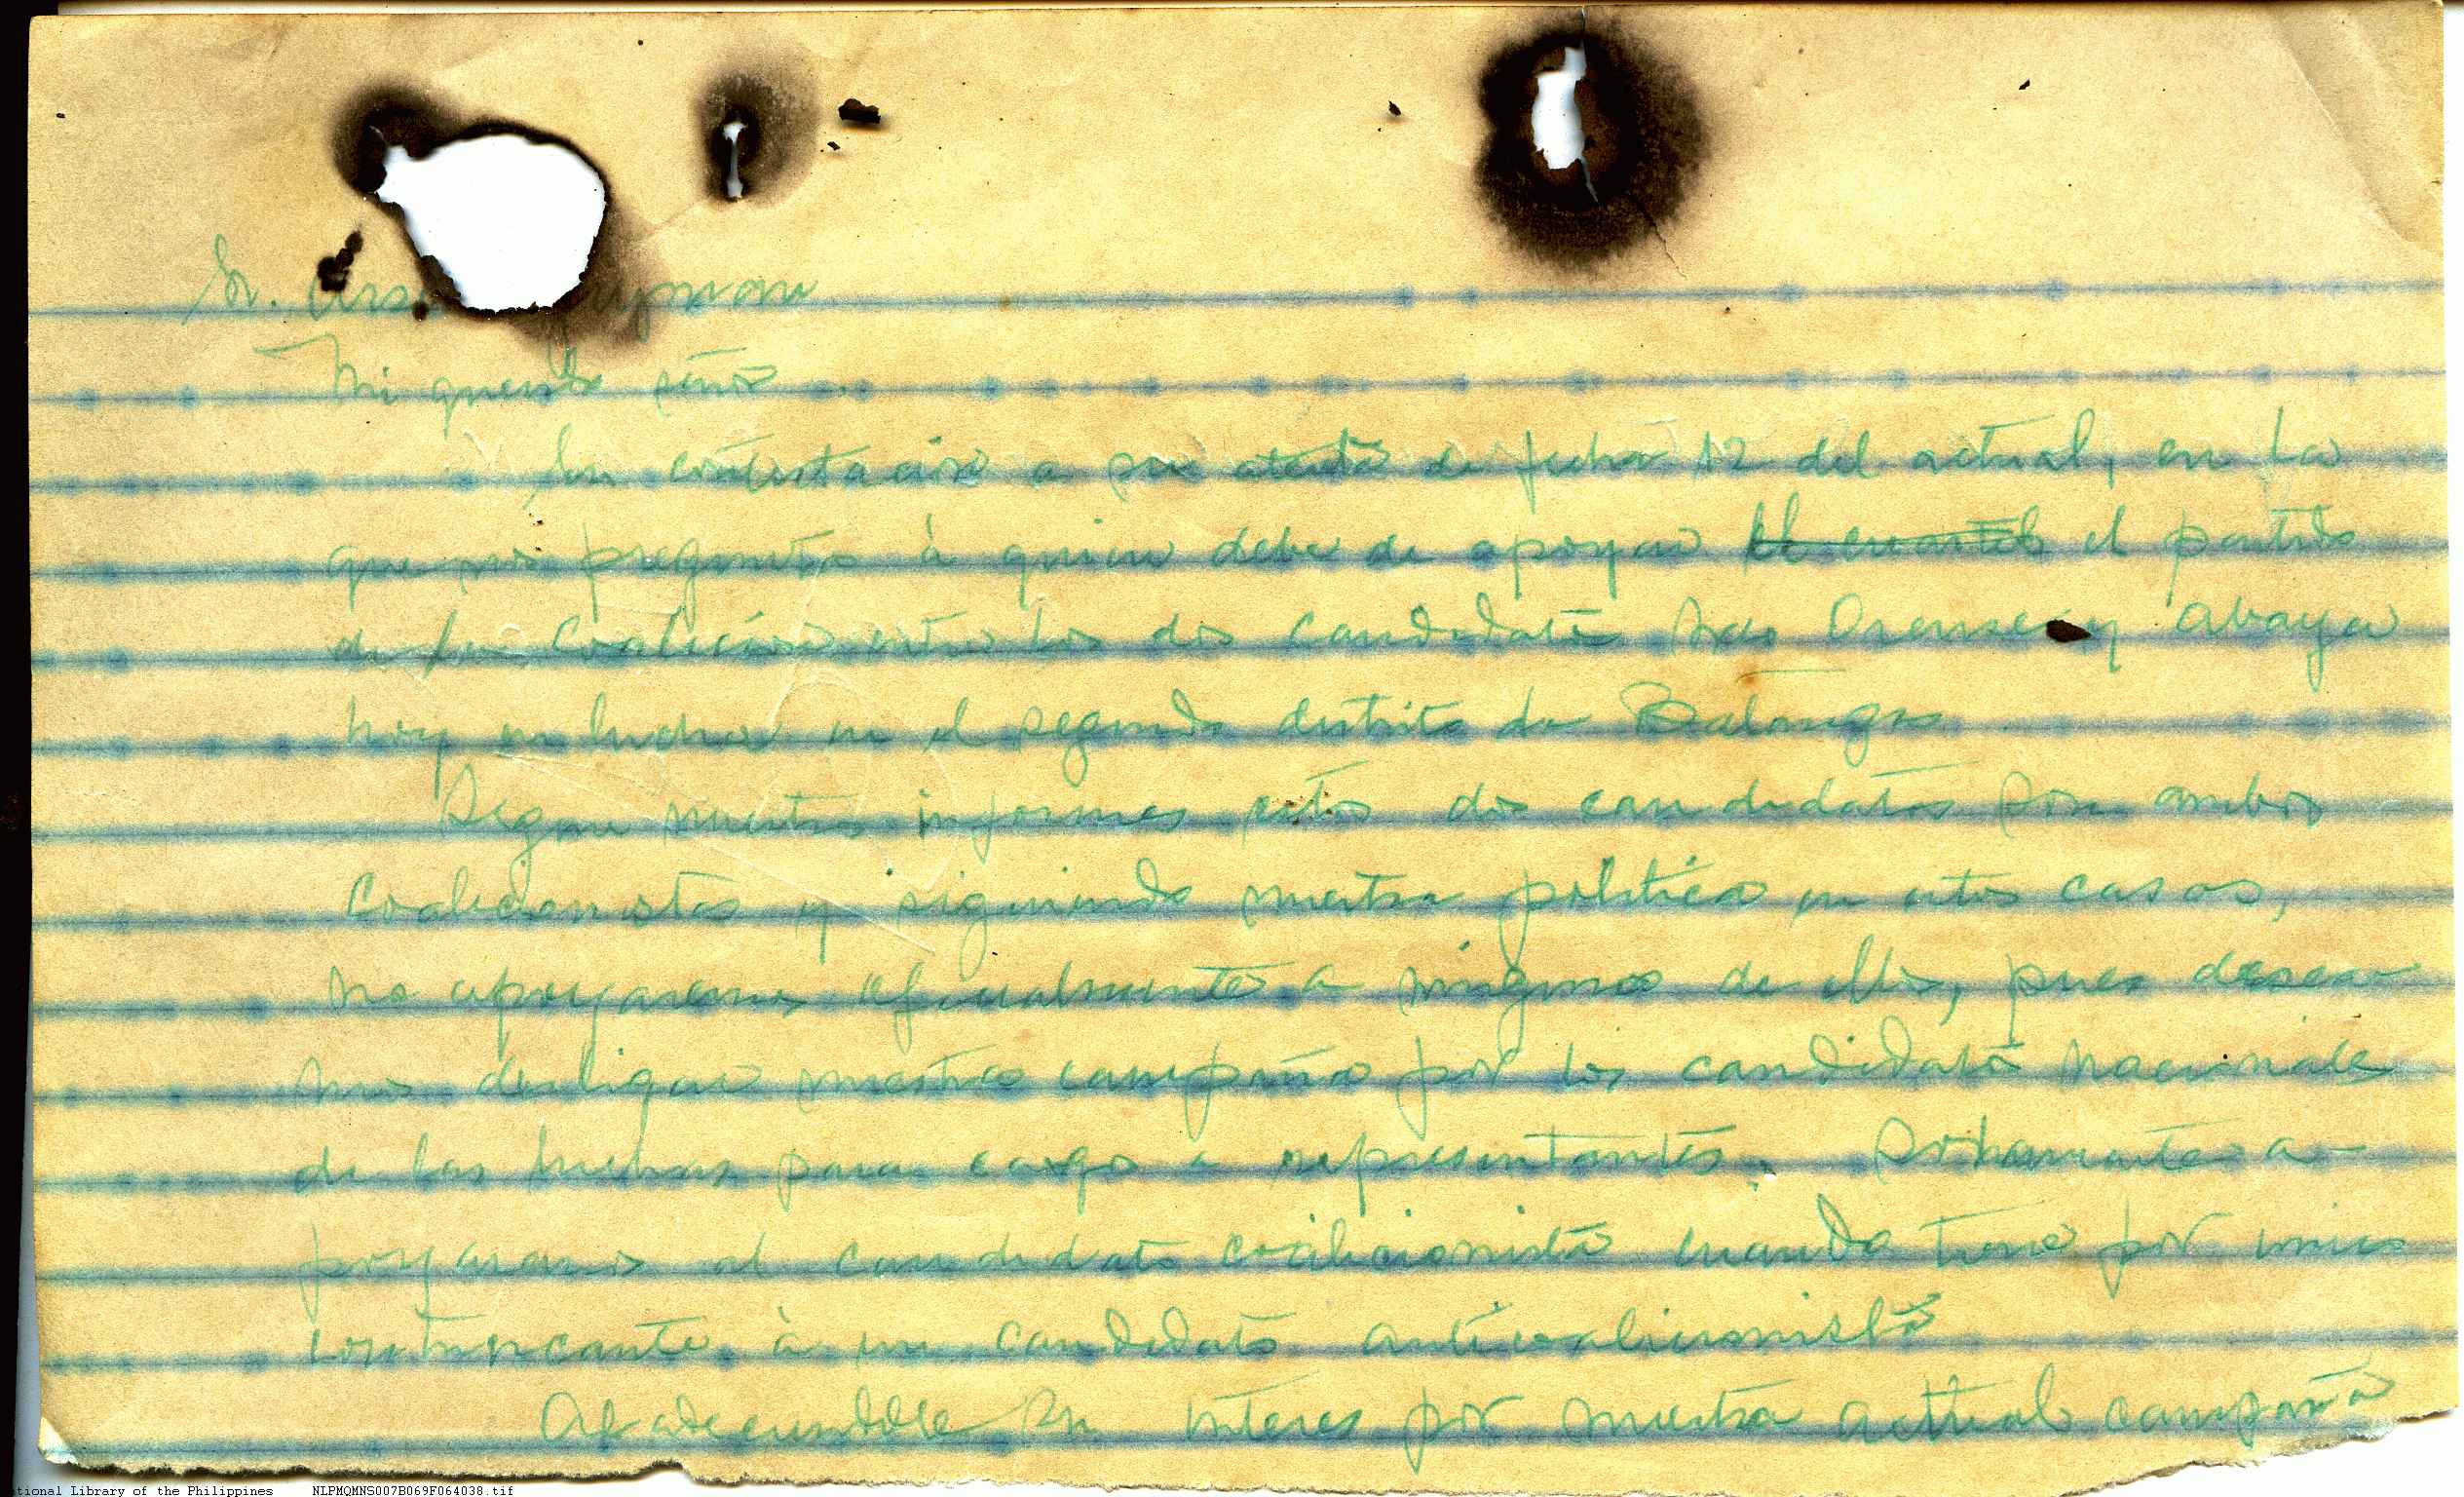 Sr. Ars
Mi querido señor
En contestacion a su atenta de fecha 12 del actual, en la
que nos pregunta á quien debe de apoyar el partido
de la Coalicion entre los dos candidatos Sres Orense y Abaya
hoy en lucha en el segundo distrito de Batangas
Segun nuestros informes estos dos candidatos son ambos
Coalicionistas y siguiendo nuestra politica en estos casos,
no apoyaremos oficialmente a ninguno de ellos, pues desea
mos desligar nuestra campaña por los candidatos nacionales
de las luchas para cargo a representantes. Solamente a-
poyaremos al candidato coalicionista cuando tiene por unico
contrincante á un candidato anticoalicionista
Agradeciendole su interes por nuestra actual campaña
National Library of the Philippines NLPMQMNS007B069F064038.tif